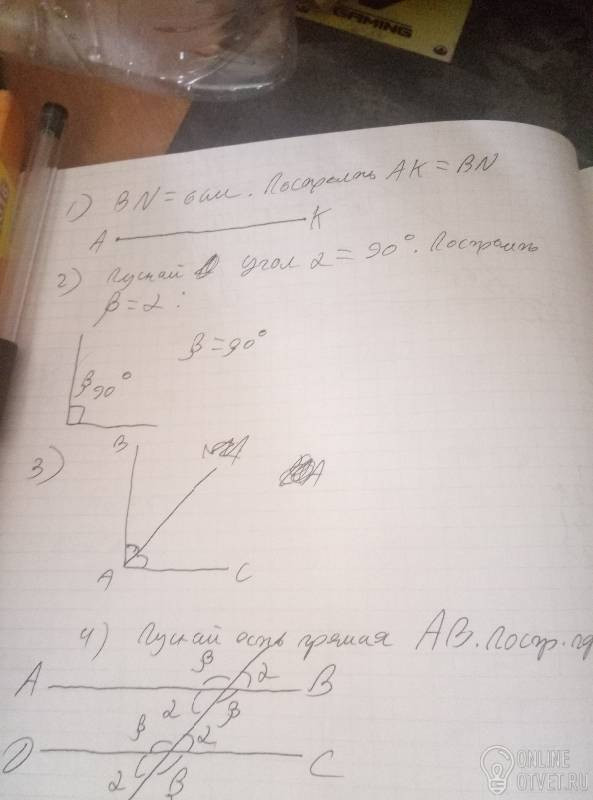 GAMING
1) BN = 6 см. Построить AK = BN
A K
2) Пускай угол α = 90°. Построить
β = α :
β = 90°
β 90°
3)
B
A C
4) Пускай есть прямая AB. Постр.
β α
A B
α β
β α
D C
α β
ONLINE
OTVET.RU